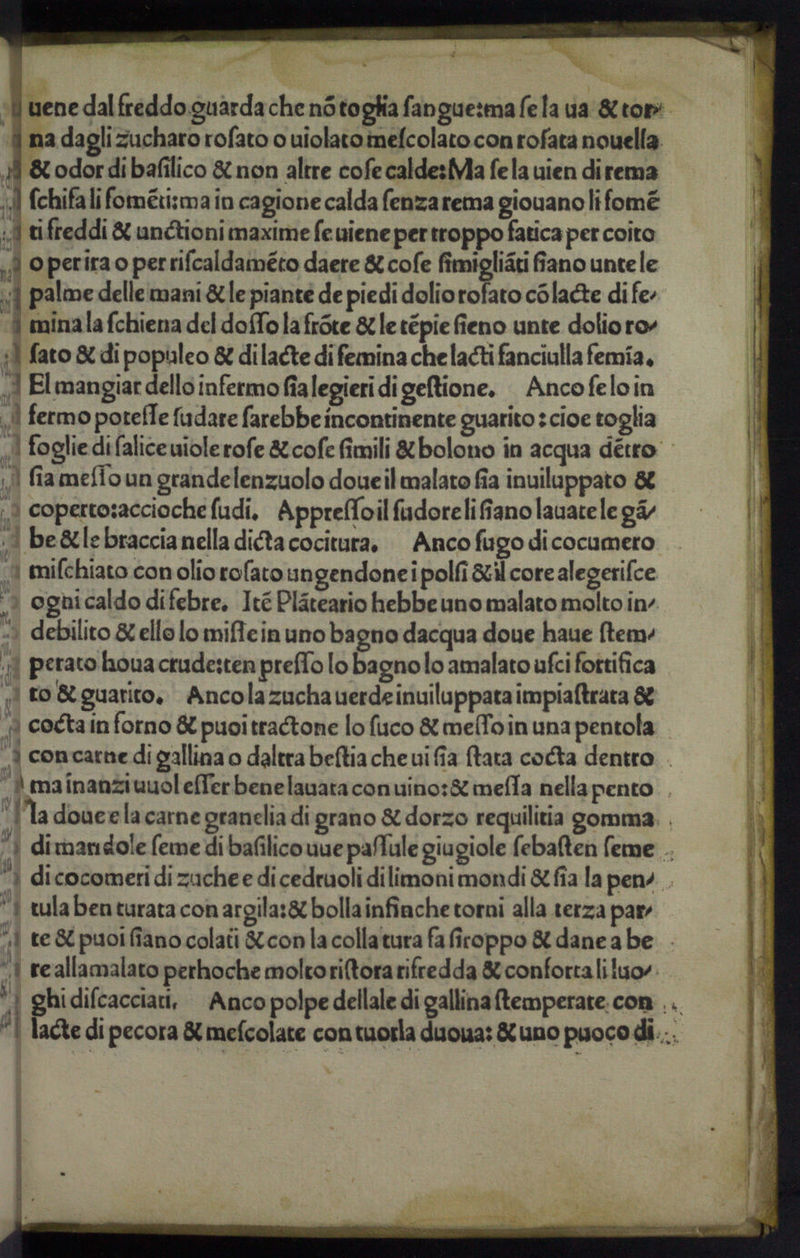 uene dal freddo guarda che nō toglia ſangue:ma ſe la ua & tor⸗
na dagli zucharo roſato o uiolato meſcolato con roſata nouella
& odor di baſilico & non altre coſe calde:Ma ſe la uien di rema
ſchifa li fomēti:ma in cagione calda ſenza rema giouano li fomē
ti freddi & unctioni maxime ſe uiene per troppo fatica per coito
o per ira o per riſcaldamēto daere & coſe ſimigliāti ſiano unte le
palme delle mani & le piante de piedi dolio roſato cō lacte di fe⸗
mina la ſchiena del doſſo la frōte & le tēpie ſieno unte dolio ro⸗
ſato & di populeo & di lacte di femina che lacti fanciulla femia.
El mangiar dello infermo ſia legieri di geſtione. Anco ſe lo in
fermo poteſſe ſudare ſarebbe incontinente guarito : cioe toglia
foglie di ſalice uiole roſe & coſe ſimili & bolono in acqua dētro
ſia meſſo un grande lenzuolo doue il malato ſia inuiluppato &
coperto:accioche ſudi. Appreſſo il ſudore li ſiano lauate le gā⸗
be & le braccia nella dicta cocitura. Anco ſugo di cocumero
miſchiato con olio roſato ungendone i polſi & il core alegeriſce
ogni caldo di febre. Itē Plāteario hebbe uno malato molto in⸗
debilito & ello lo miſſe in uno bagno dacqua doue haue ſtem⸗
perato houa crude:ten preſſo lo bagno lo amalato uſci fortifica
to & guarito. Anco la zucha uerde inuiluppata impiaſtrata &
cocta in forno & puoi tractone lo ſuco & meſſo in una pentola
con carne di gallina o daltra beſtia che ui ſia ſtata cocta dentro
ma inanzi uuol eſſer bene lauata con uino:& meſſa nella pento
la doue e la carne granelia di grano & dorzo requilitia gomma
di mandole ſeme di baſilico uue paſſule giugiole ſebaſten ſeme
di cocomeri di zuche e di cedruoli di limoni mondi & ſia la pen⸗
tula ben turata con argila:& bolla infinche torni alla terza par⸗
te & puoi ſiano colati & con la colla tura fa ſiroppo & dane a be
re allamalato perhoche molto riſtora rifredda & conforta li luo⸗
ghi diſcacciati. Anco polpe dellale di gallina ſtemperate con
lacte di pecora & meſcolate con tuorla duoua: & uno puoco di